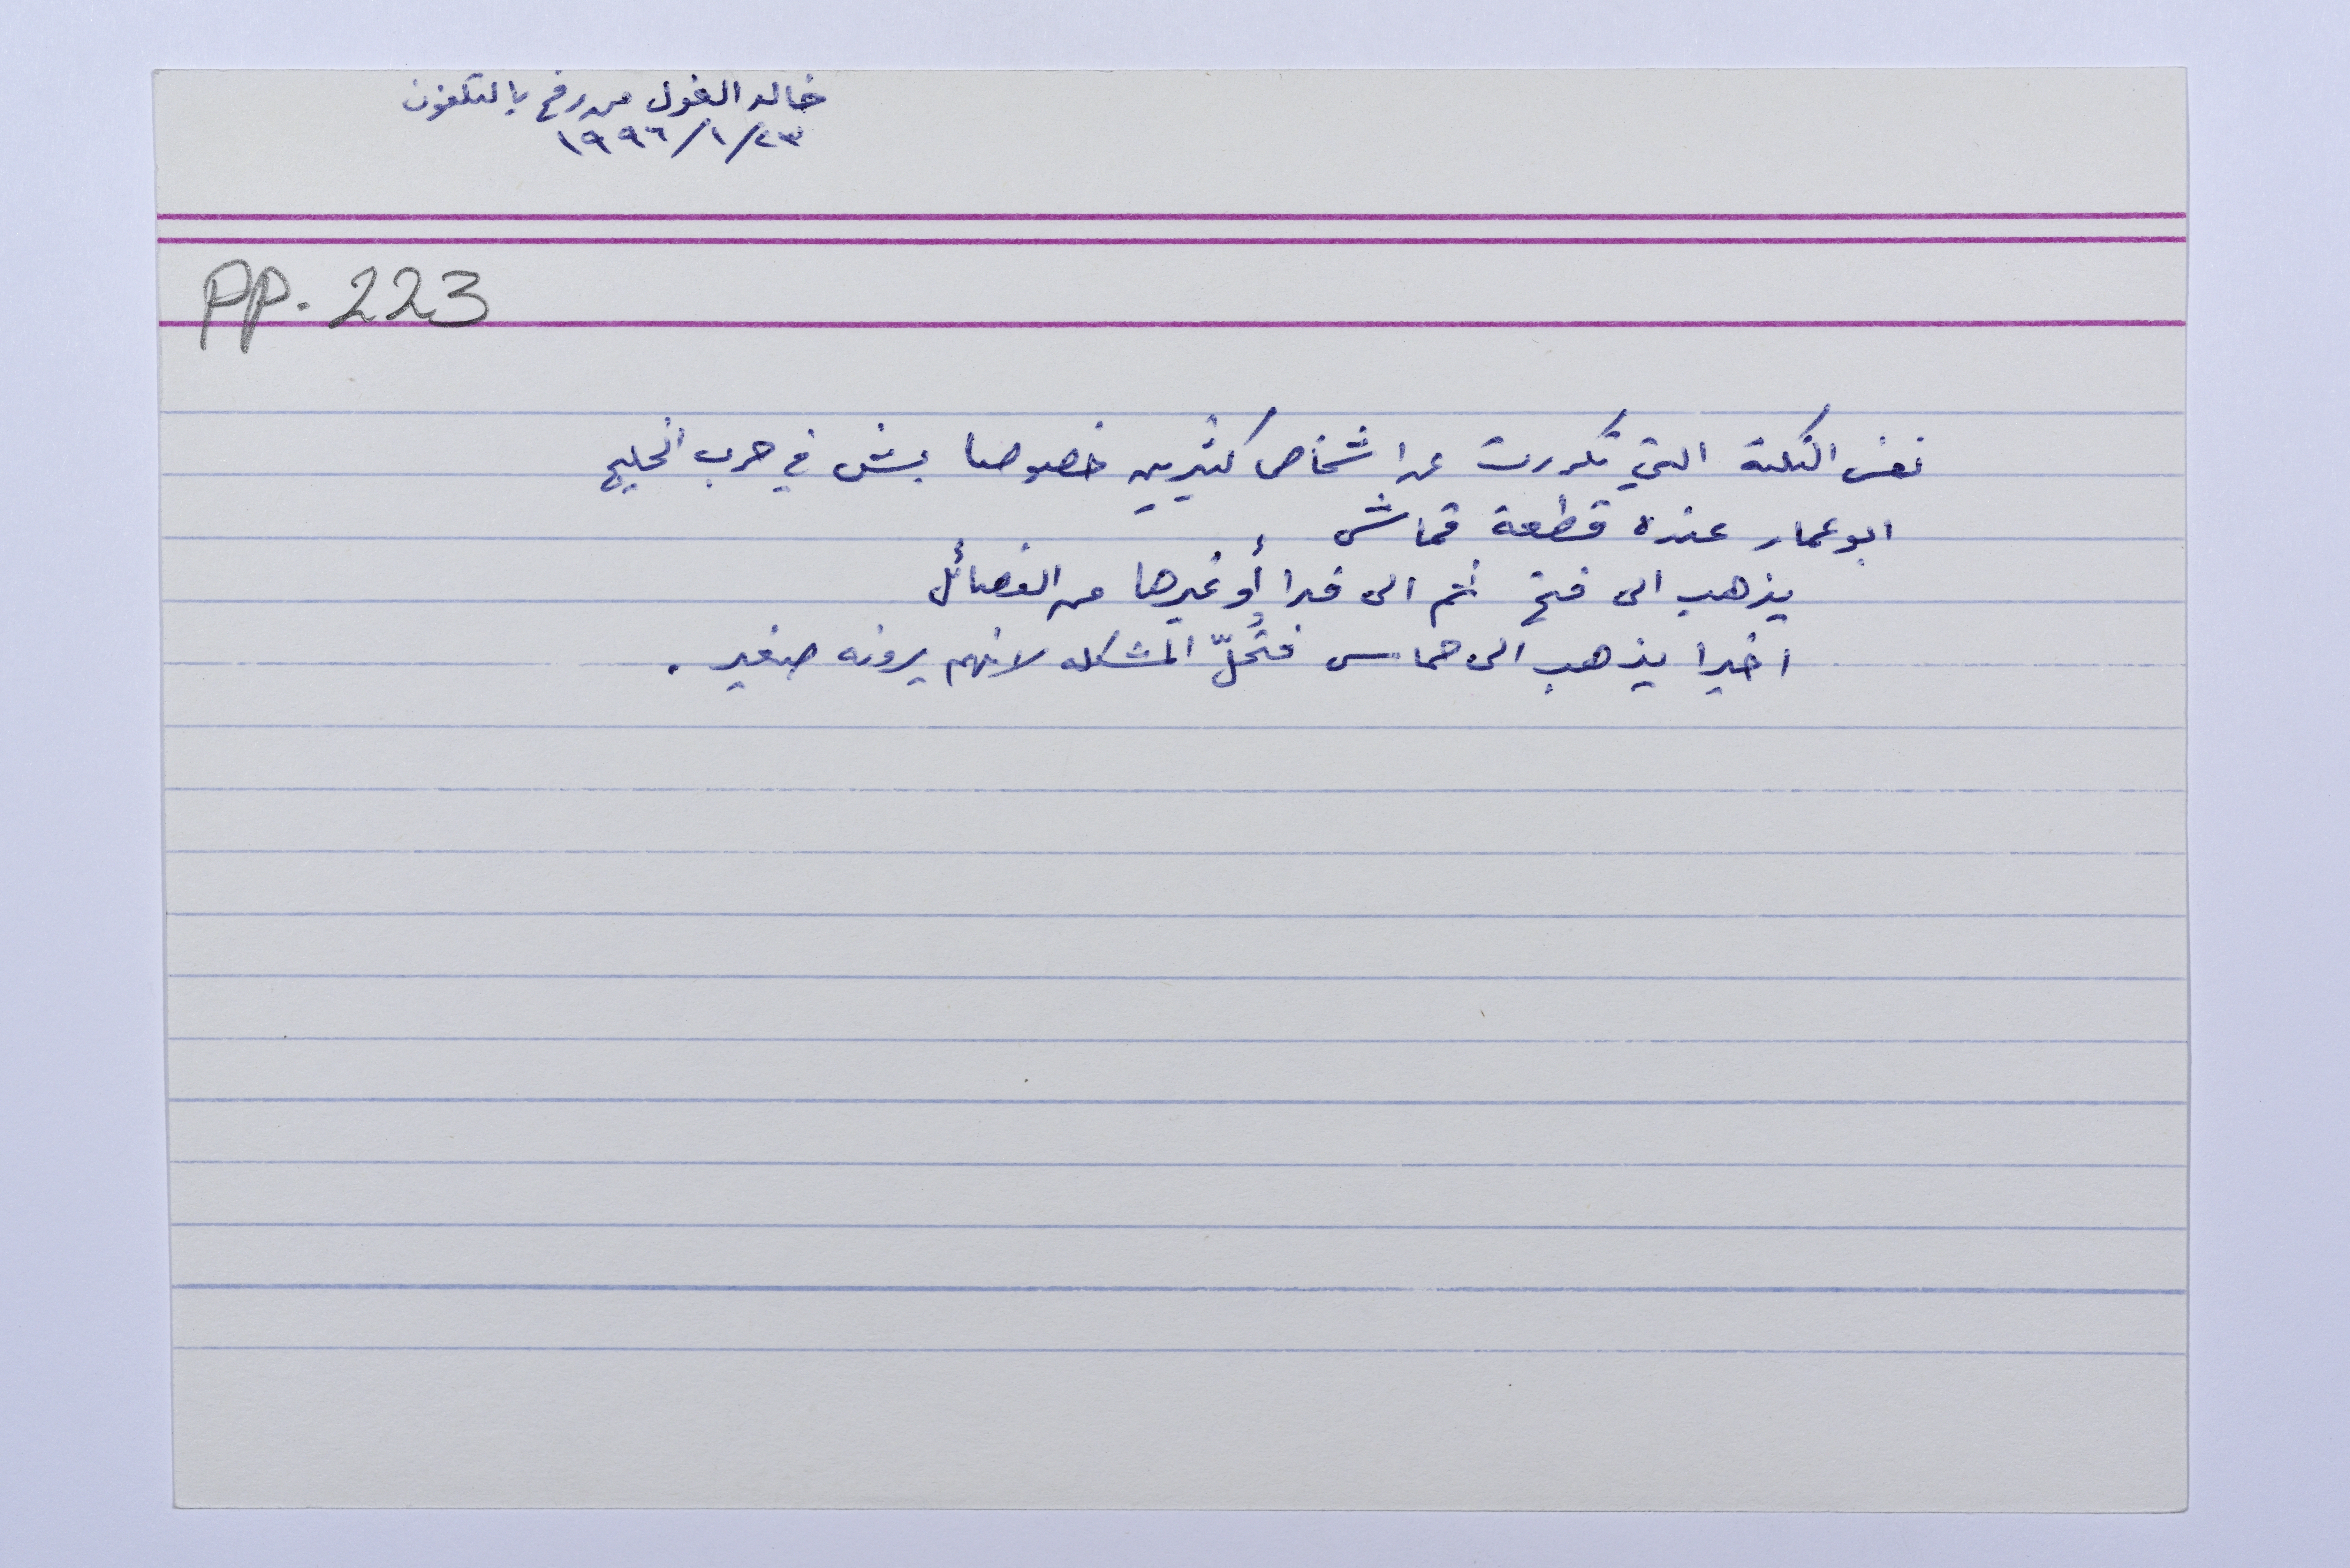 خالد الغول من رفح بالتلفون
٢٣/١/١٩٩٦
PP. 223
نفس النكتة التي تكررت عن اشخاص كثيرين خصوصا بش في حرب الخليج
ابو عمار عنده قطعة قماش
يذهب الى فتح ثم الى فدا أو غيرها من الفصائل
اخيرا يذهب الى حماس فتُحلّ المشكله لانهم يرونه صغير .